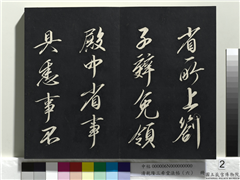 省所上劄
子辭免領
殿中省事
具悉事不
2